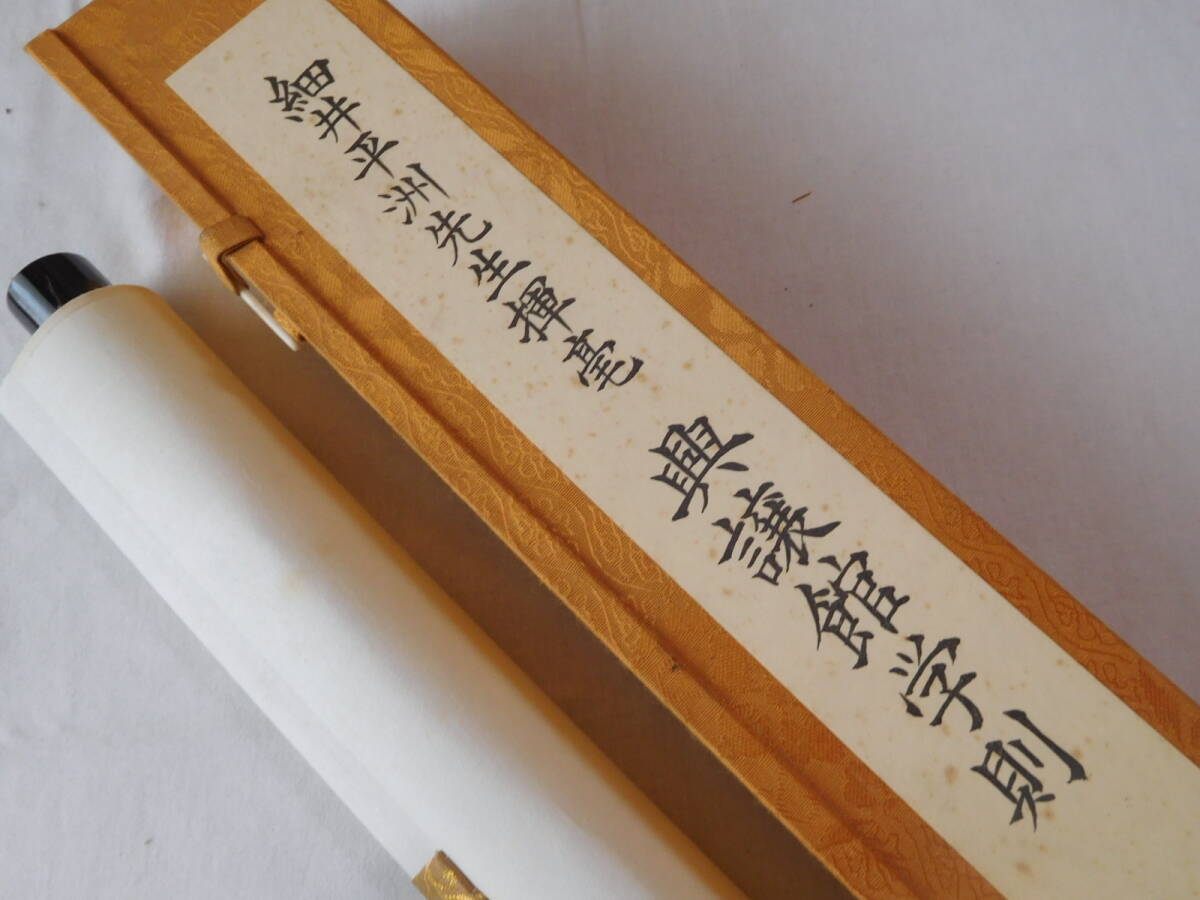 細井平洲先生揮毫　興譲館学則